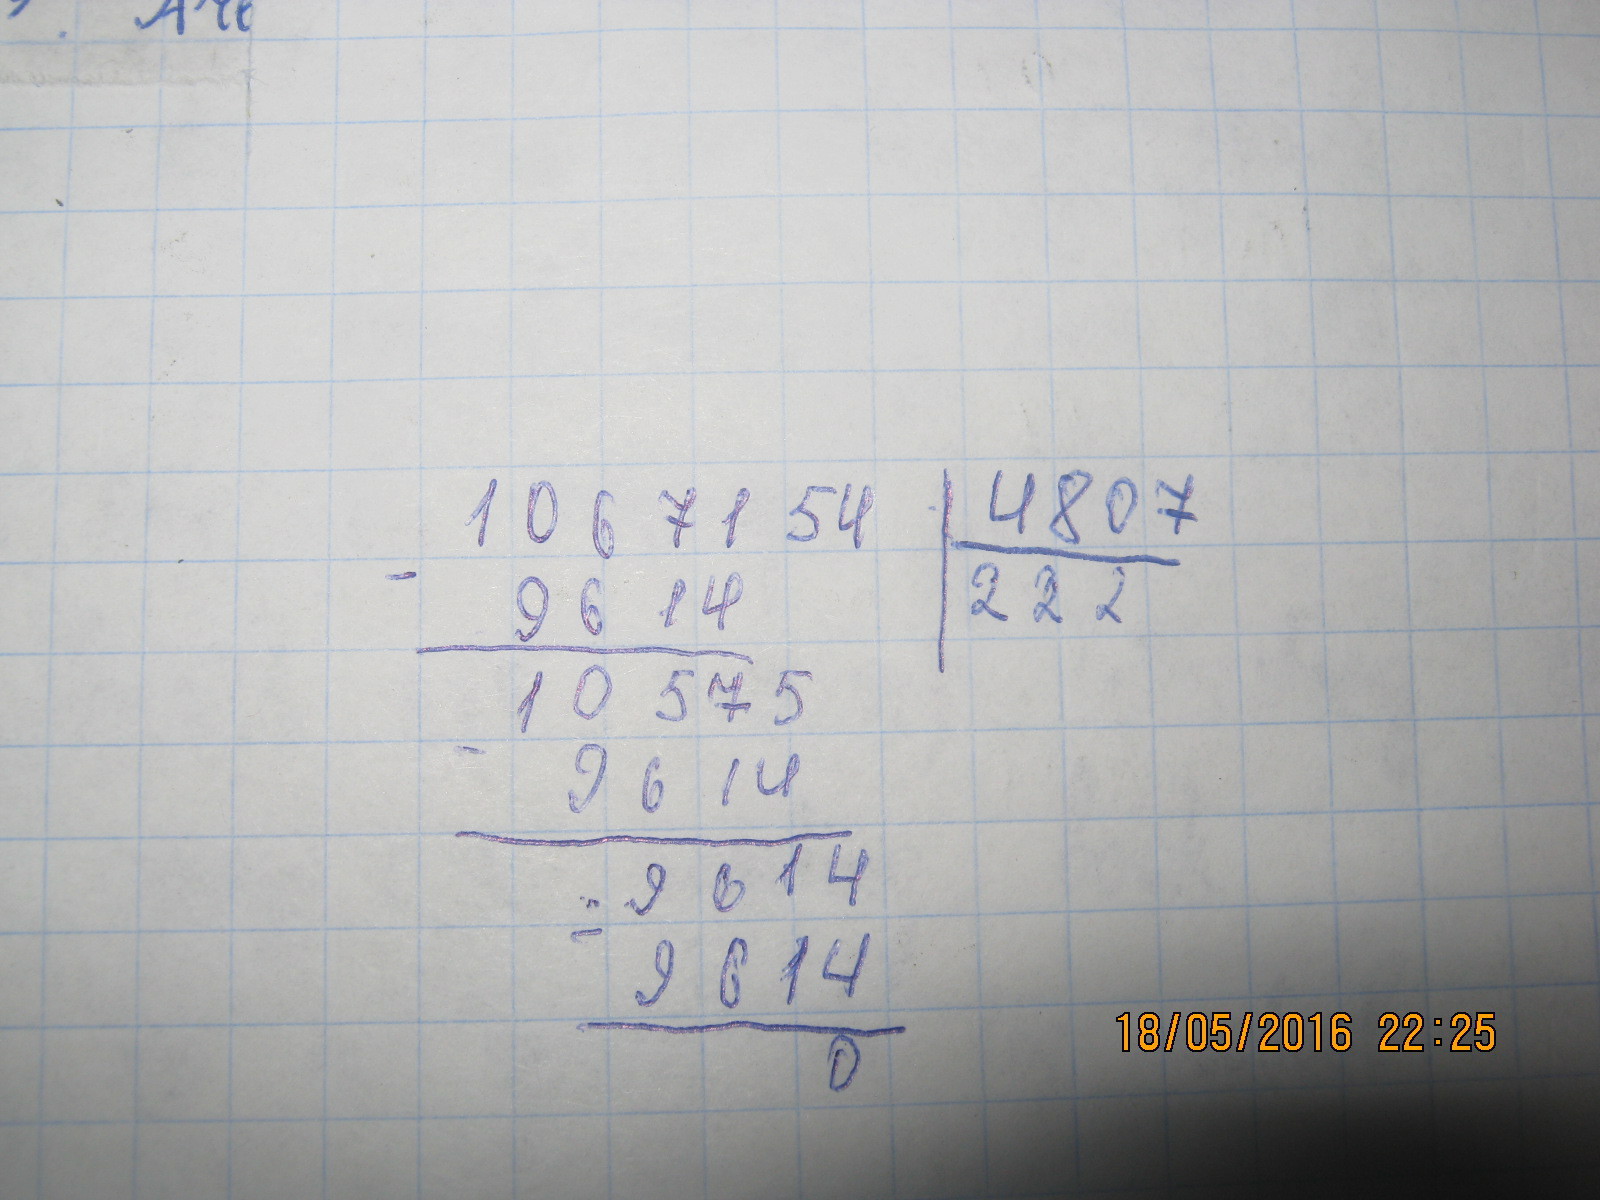 1067154 4807
- 9614 222
10575
- 9614
- 9614
9614
0
18/05/2016 22:25